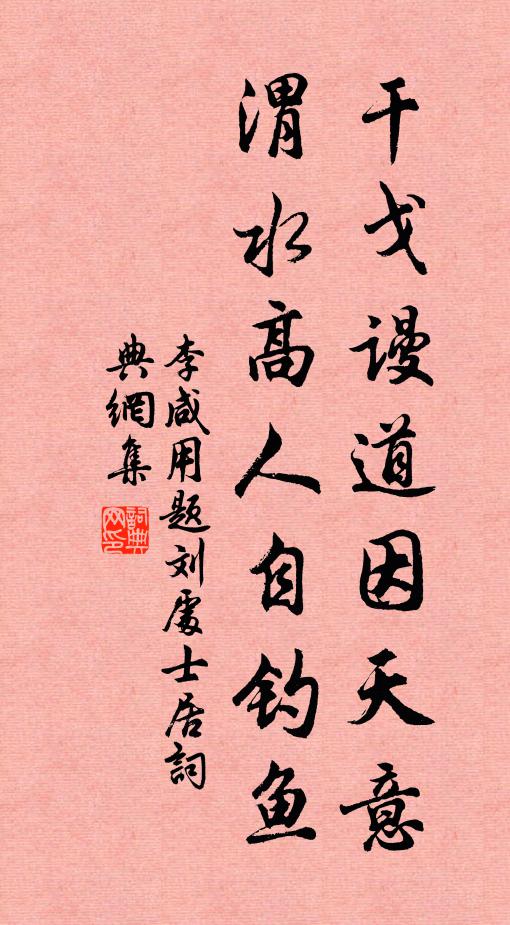 干戈谩道因天意
渭水高人自钓鱼
李咸用题刘处士居詞
典網集
詞典网印